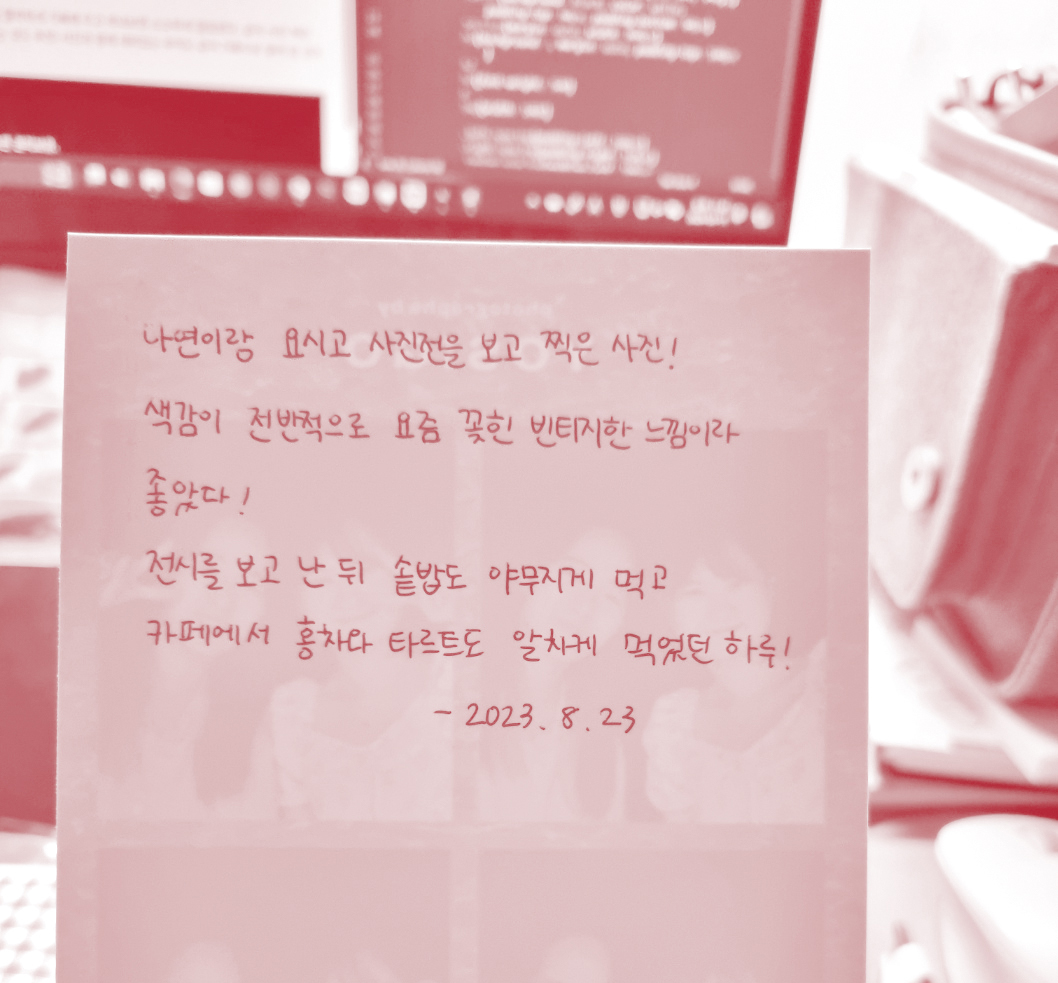 나연이랑 요시고 사진전을 보고 찍은 사진!
색감이 전반적으로 요즘 꽂힌 빈티지한 느낌이라
좋았다!
전시를 보고 난 뒤 솥밥도 야무지게 먹고
카페에서 홍차와 타르트도 알차게 먹었던 하루!
- 2023. 8. 23